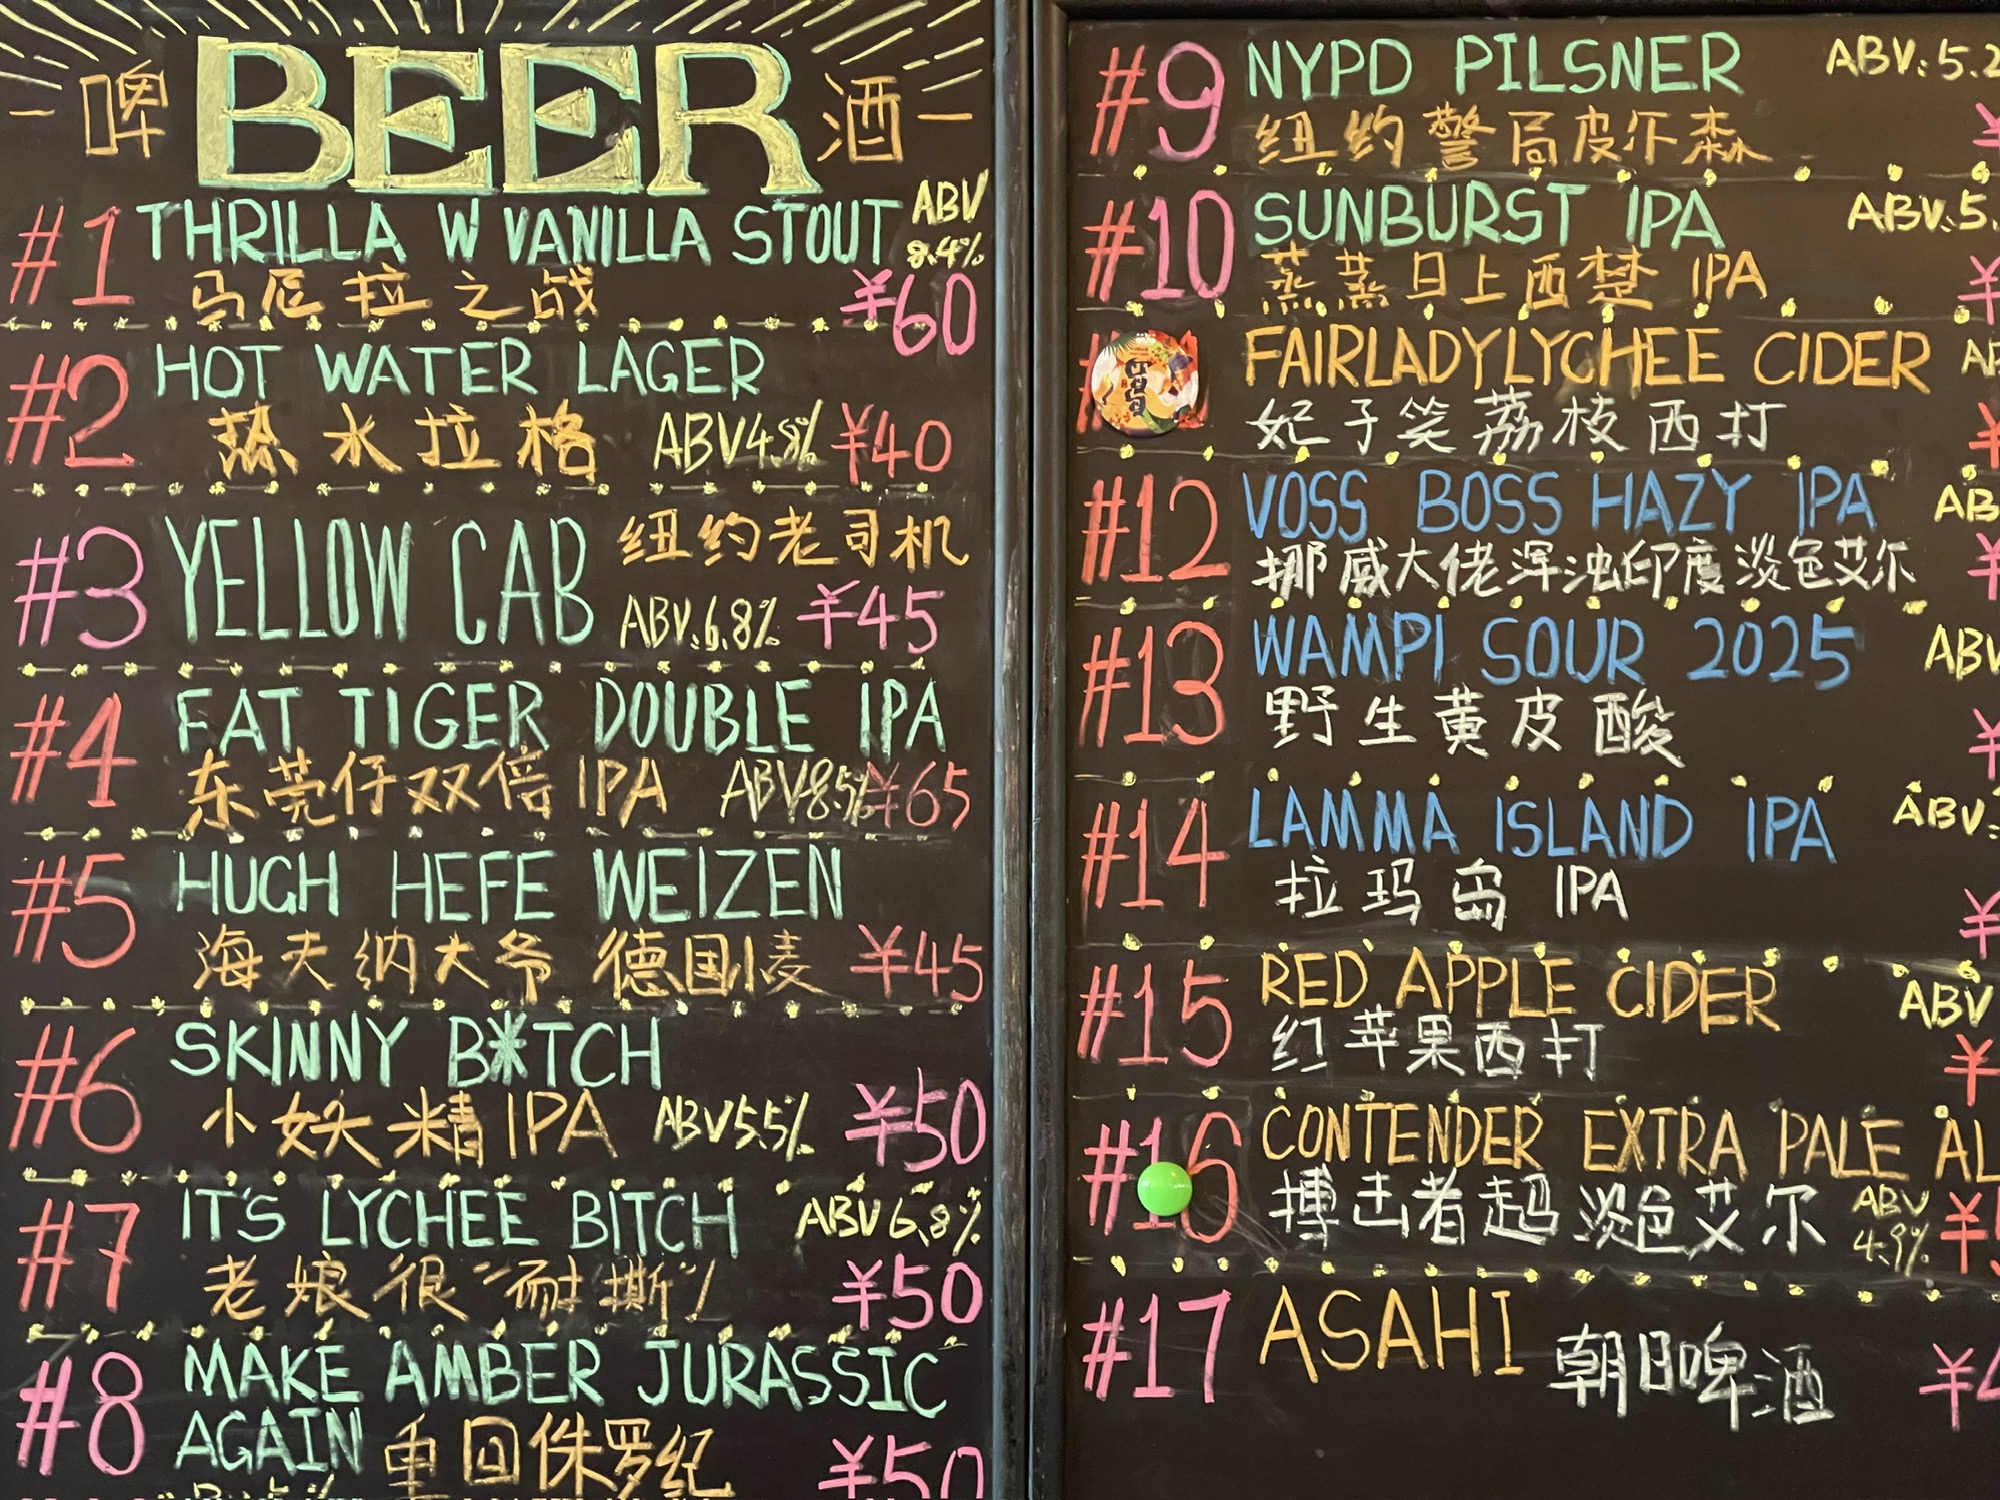 啤 BEER 酒
#1 THRILLA W VANILLA STOUT ABV 8.4%
马尼拉之战 ¥60
#2 HOT WATER LAGER
热水拉格 ABV4.8% ¥40
#3 YELLOW CAB 纽约老司机
ABV:6.8% ¥45
#4 FAT TIGER DOUBLE IPA
东莞仔双倍IPA ABV8.5% ¥65
#5 HUGH HEFE WEIZEN
海夫纳大爷 德国小麦 ¥45
#6 SKINNY B*TCH
小妖精IPA ABV5.5% ¥50
#7 IT'S LYCHEE BITCH ABV6.8%
老娘很"耐撕" ¥50
#8 MAKE AMBER JURASSIC
AGAIN 重回侏罗纪 ¥50
#9 NYPD PILSNER ABV:5.2
纽约警局皮尔森 ¥
#10 SUNBURST IPA ABV:5.
蒸蒸日上西楚 IPA ¥
FAIRLADY LYCHEE CIDER
妃子笑荔枝西打 ¥
#12 VOSS BOSS HAZY IPA AB
挪威大佬浑浊印度淡色艾尔 ¥
#13 WAMPI SOUR 2025 ABV
野生黄皮酸 ¥
#14 LAMMA ISLAND IPA ABV:
拉玛岛 IPA ¥
#15 RED APPLE CIDER ABV
红苹果西打 ¥
#16 CONTENDER EXTRA PALE AL
搏击者超淡色艾尔 ABV 4.9% ¥
#17 ASAHI 朝日啤酒 ¥4